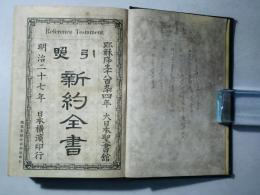 Reference Testament
引照
新約全書
耶穌降生千八百九十四年 大日本聖書館
明治二十七年 日本横濱印行